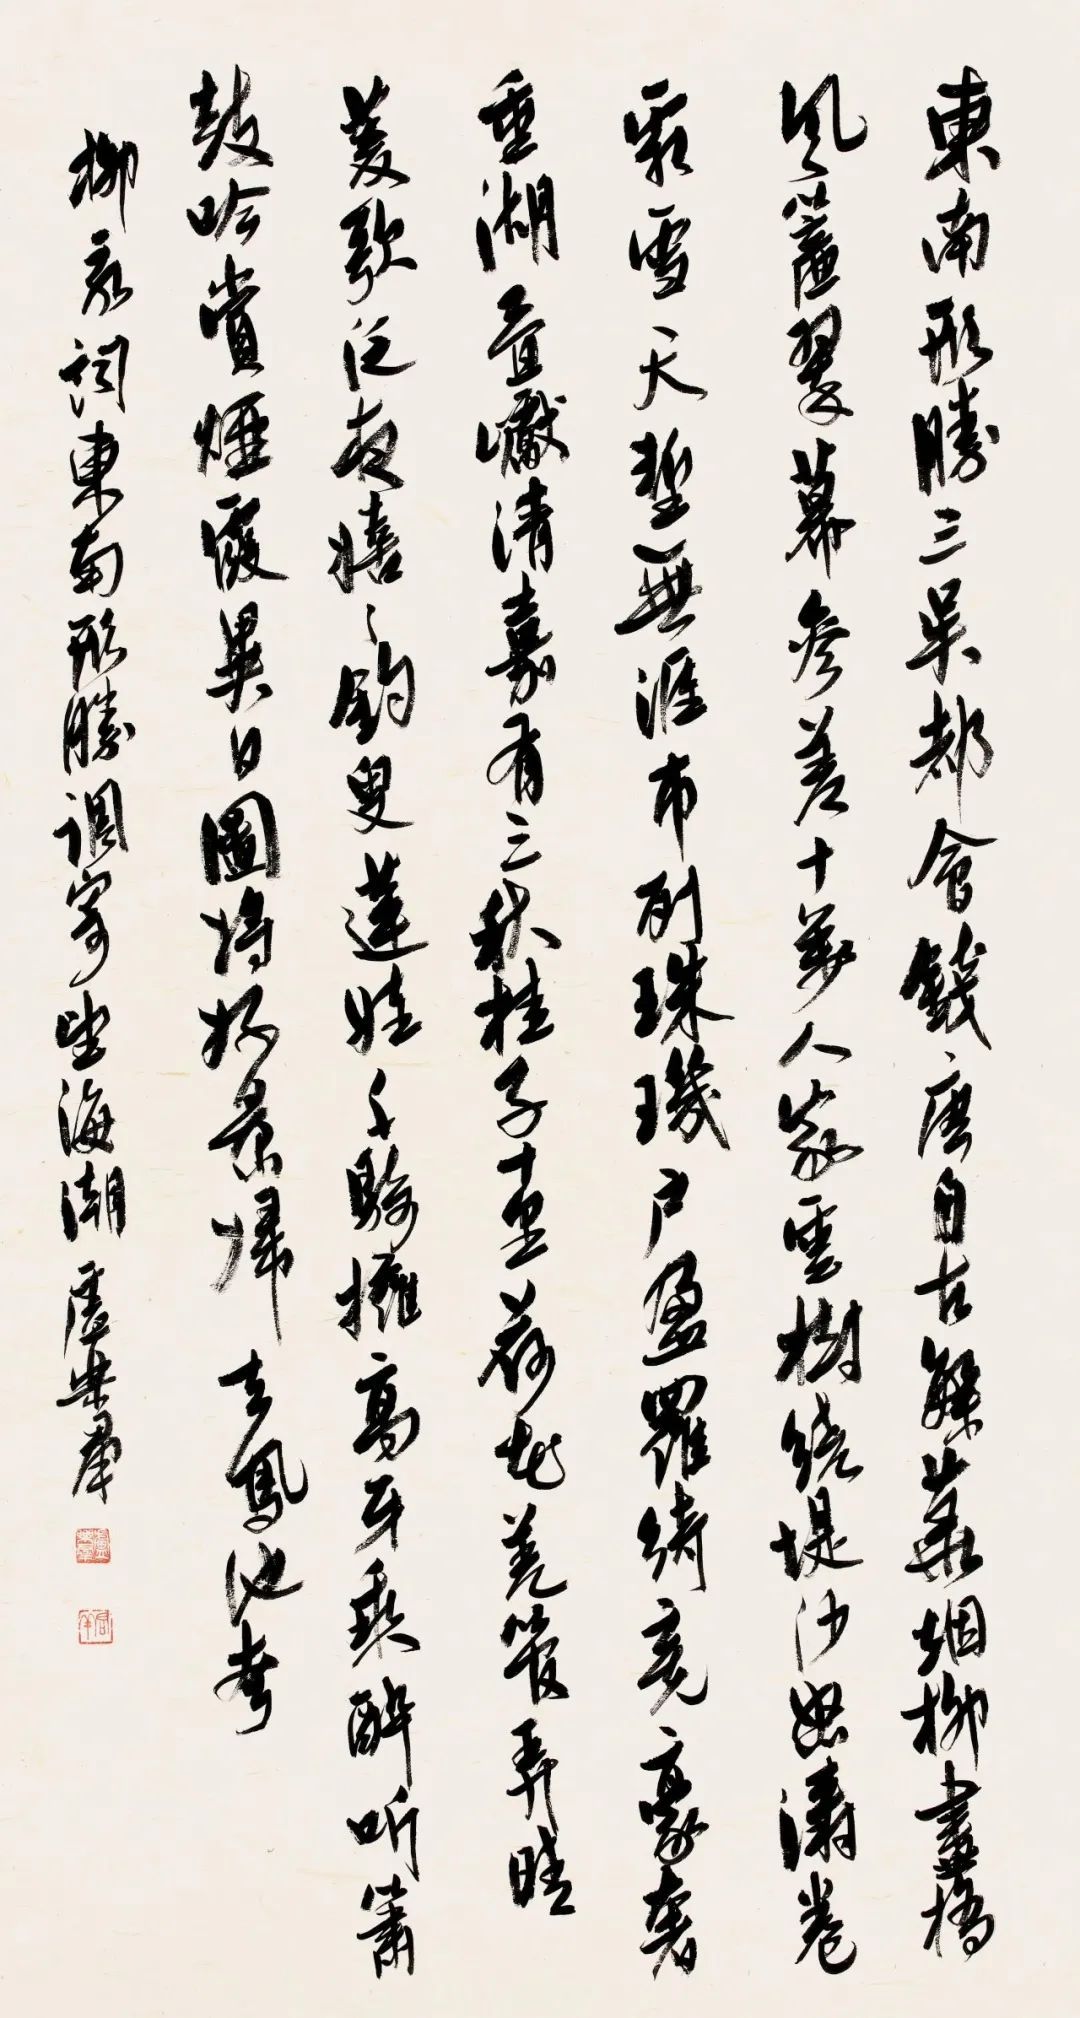 東南形勝三吴都會錢唐自古繁華烟柳畫橋
風簾翠幕參差十萬人家雲樹繞堤沙怒濤卷
霜雪天塹無涯市列珠璣户盈羅綺竞豪奢
重湖叠巘清嘉有三秋桂子十里荷花羌管弄晴
菱歌泛夜嬉々釣叟蓮娃千騎擁高牙乘醉听簫
鼓吟賞煙霞異日圖將好景歸去鳳池夸
柳永詞東南形勝調寄望海潮 盧樂羣